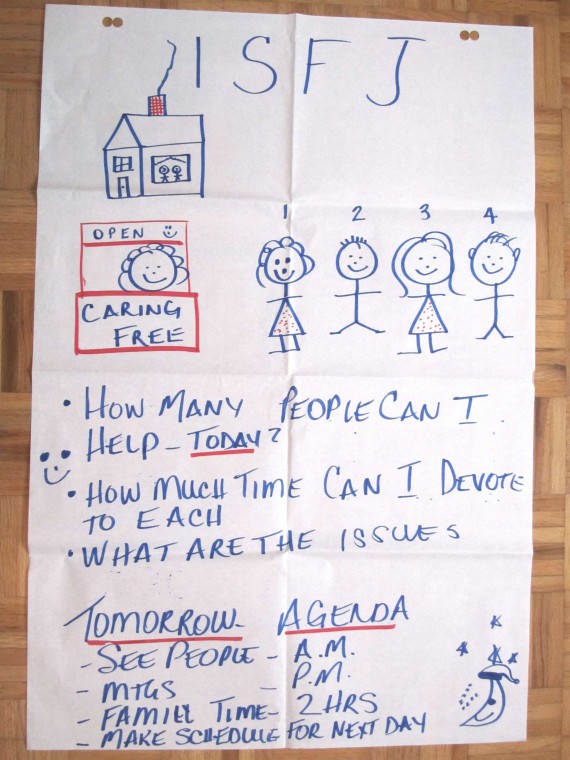 ISFJ
OPEN
CARING
FREE
1 2 3 4
• HOW MANY PEOPLE CAN I
HELP - TODAY?
• HOW MUCH TIME CAN I DEVOTE
TO EACH
• WHAT ARE THE ISSUES
TOMORROW AGENDA
- SEE PEOPLE - A.M.
- MTGS - P.M.
- FAMILY TIME - 2 HRS
- MAKE SCHEDULE FOR NEXT DAY